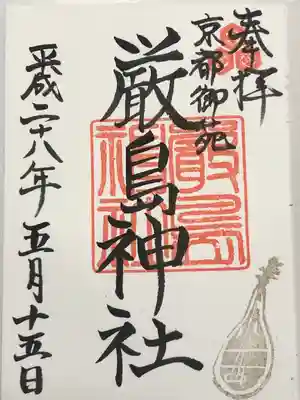 奉拝
京都御苑
厳島神社
平成二十八年五月十五日